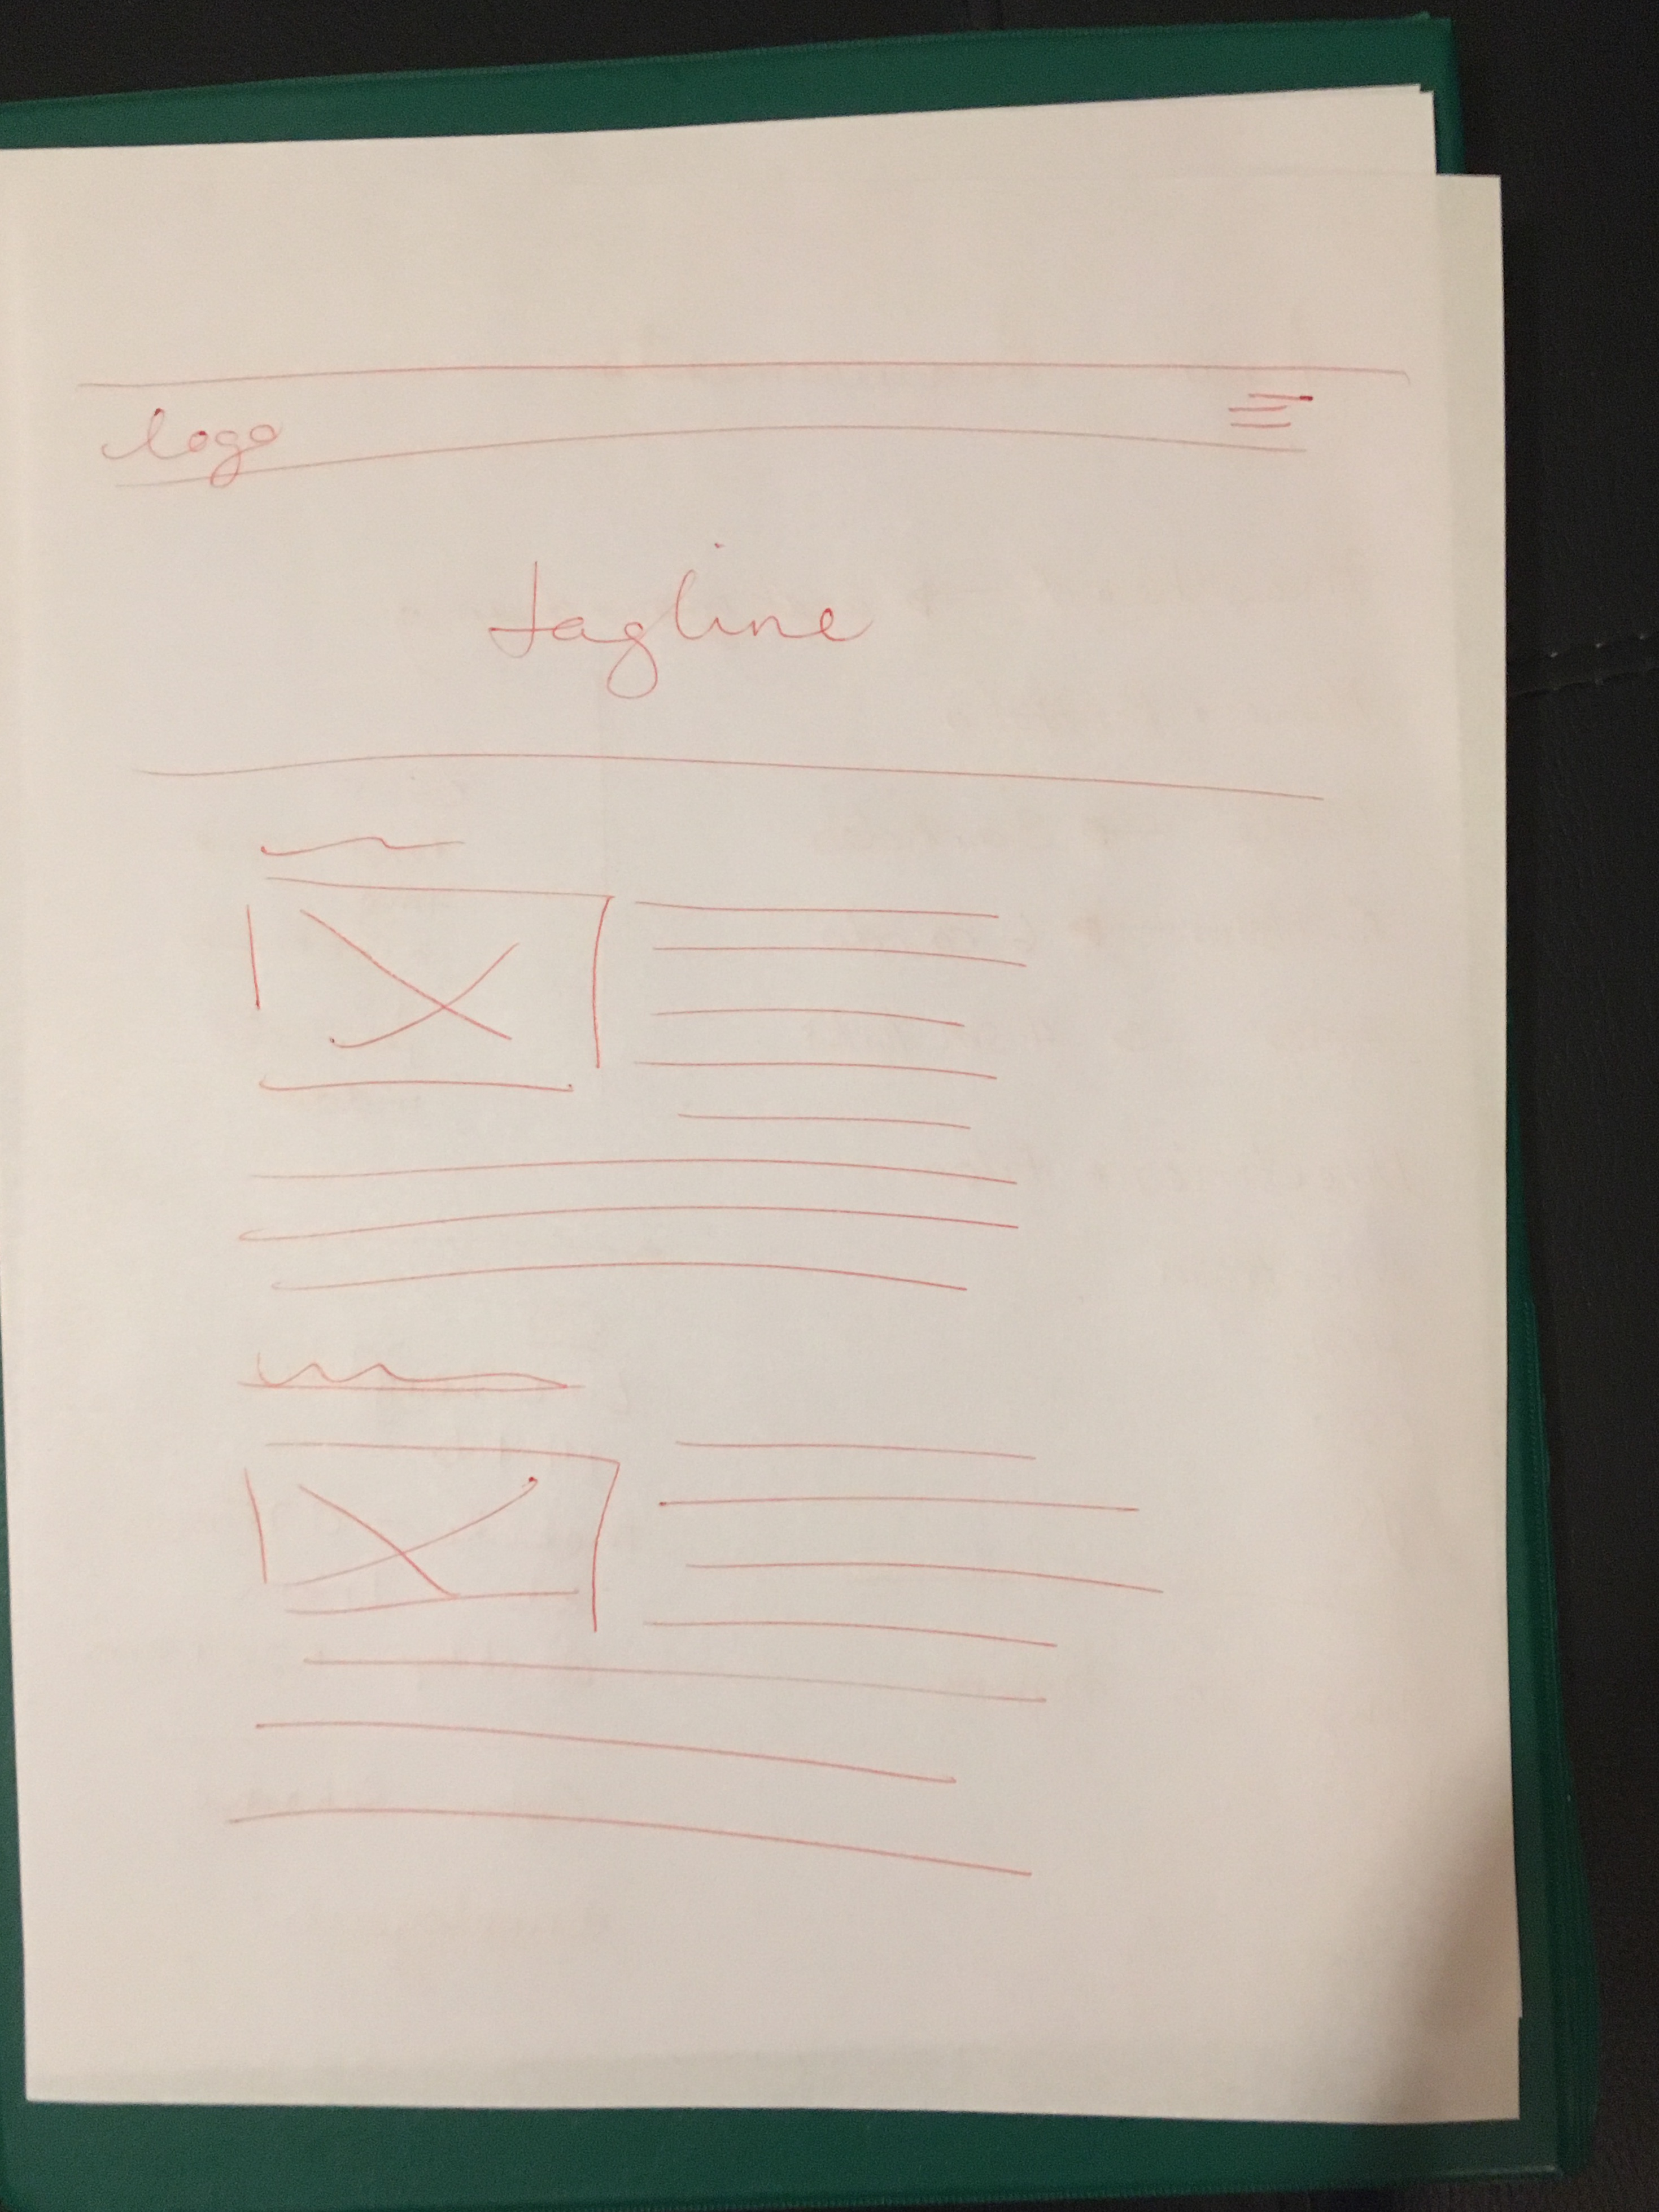 logo
tagline